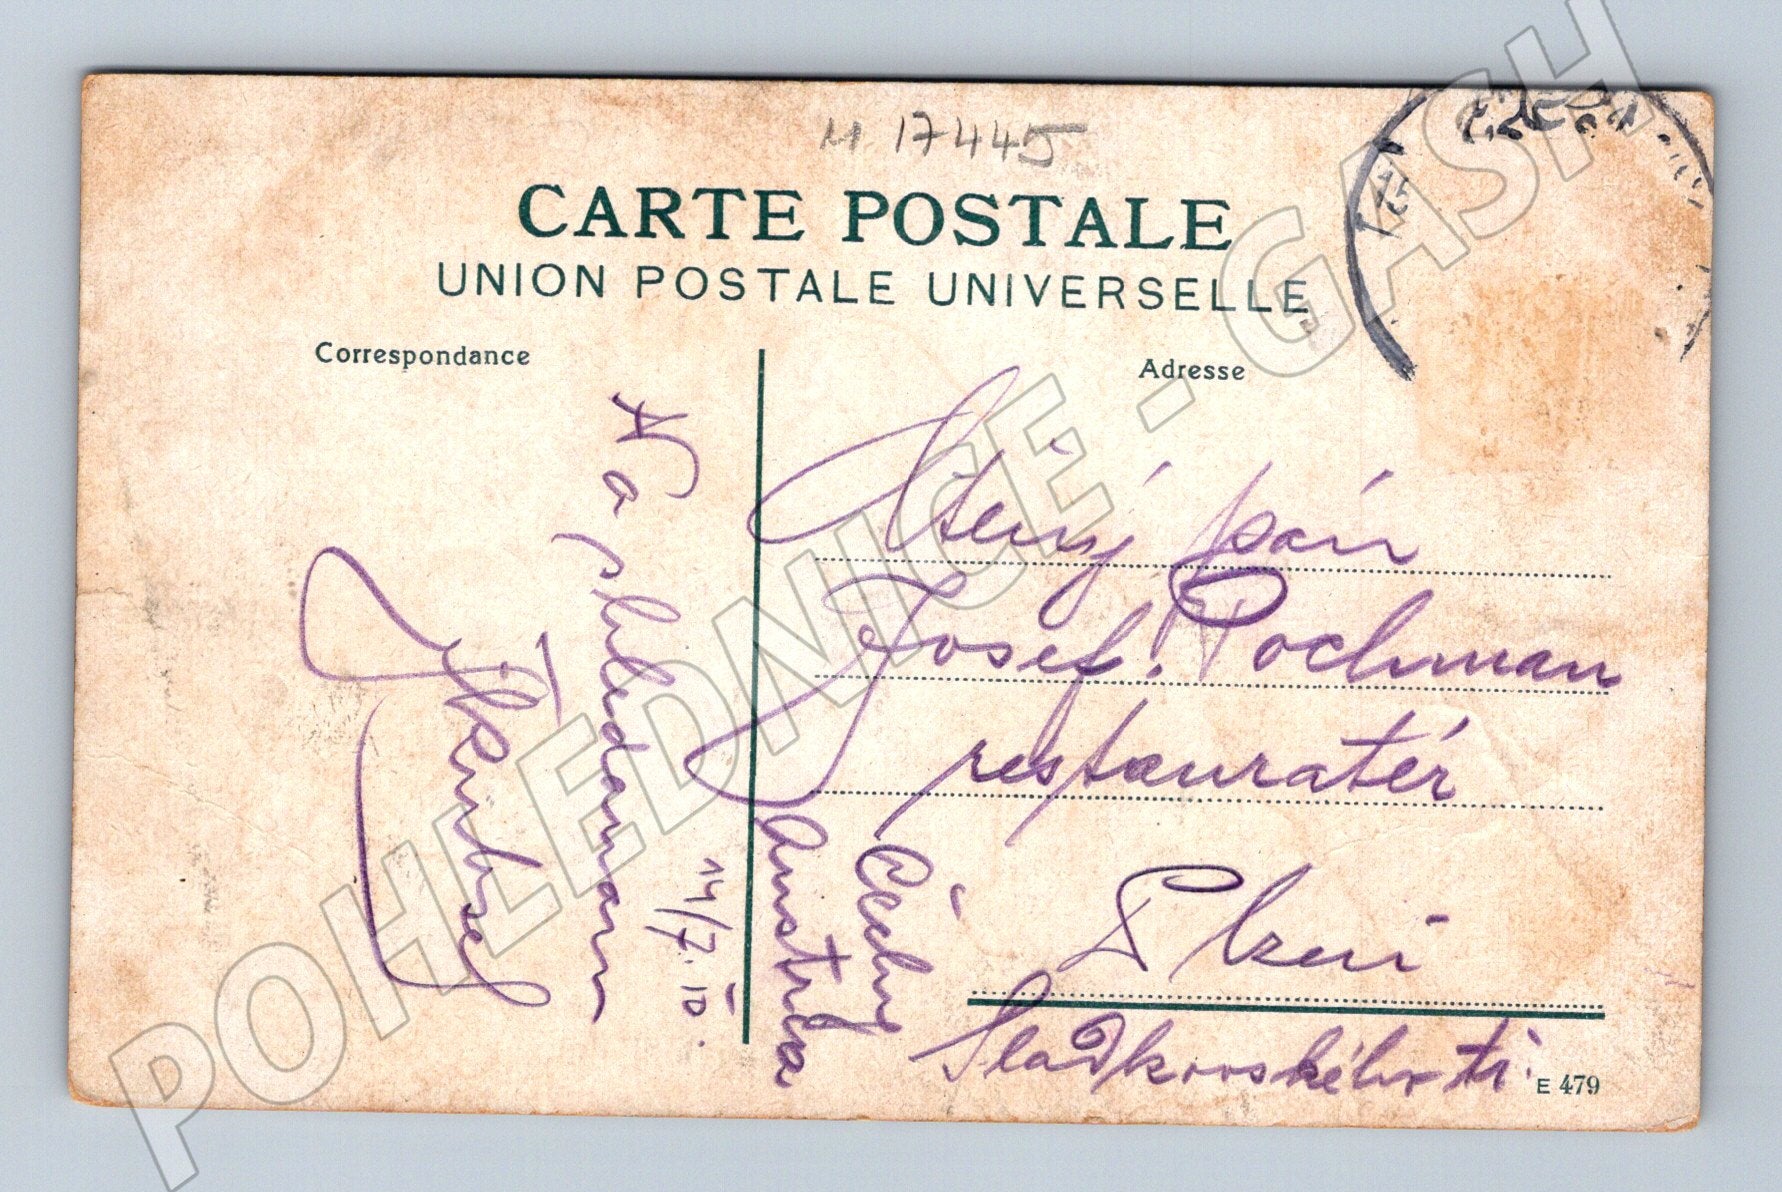 M 17445
CARTE POSTALE
UNION POSTALE UNIVERSELLE
Correspondance
Adresse
Na
shledanou
14/7. 10.
Ctěný pán
Josef Pochman
restauratér
Plzeň
Sladkovského tř.
Čechy
Austria
E 479
POHLEDNICE - GASH